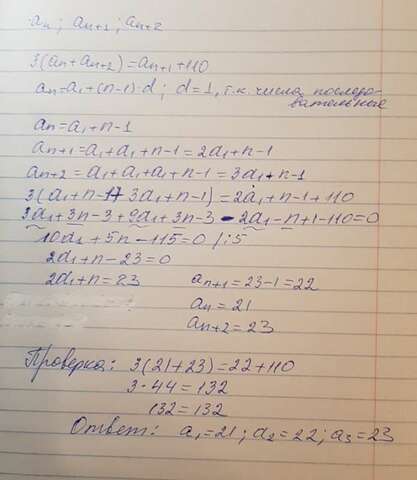 an; an+1; an+2
3(an+an+2)=an+1+110
an=a1+(n-1)·d; d=1, т.к. числа последо-
вательные
an=a1+n-1
an+1=a1+a1+n-1=2a1+n-1
an+2=a1+a1+a1+n-1=3a1+n-1
3(a1+n-1+3a1+n-1)=2a1+n-1+110
3a1+3n-3+9a1+3n-3-2a1-n+1-110=0
10a1+5n-115=0 /:5
2a1+n-23=0
2a1+n=23 an+1=23-1=22
an=21
an+2=23
Проверка: 3(21+23)=22+110
3·44=132
132=132
Ответ: a1=21; a2=22; a3=23